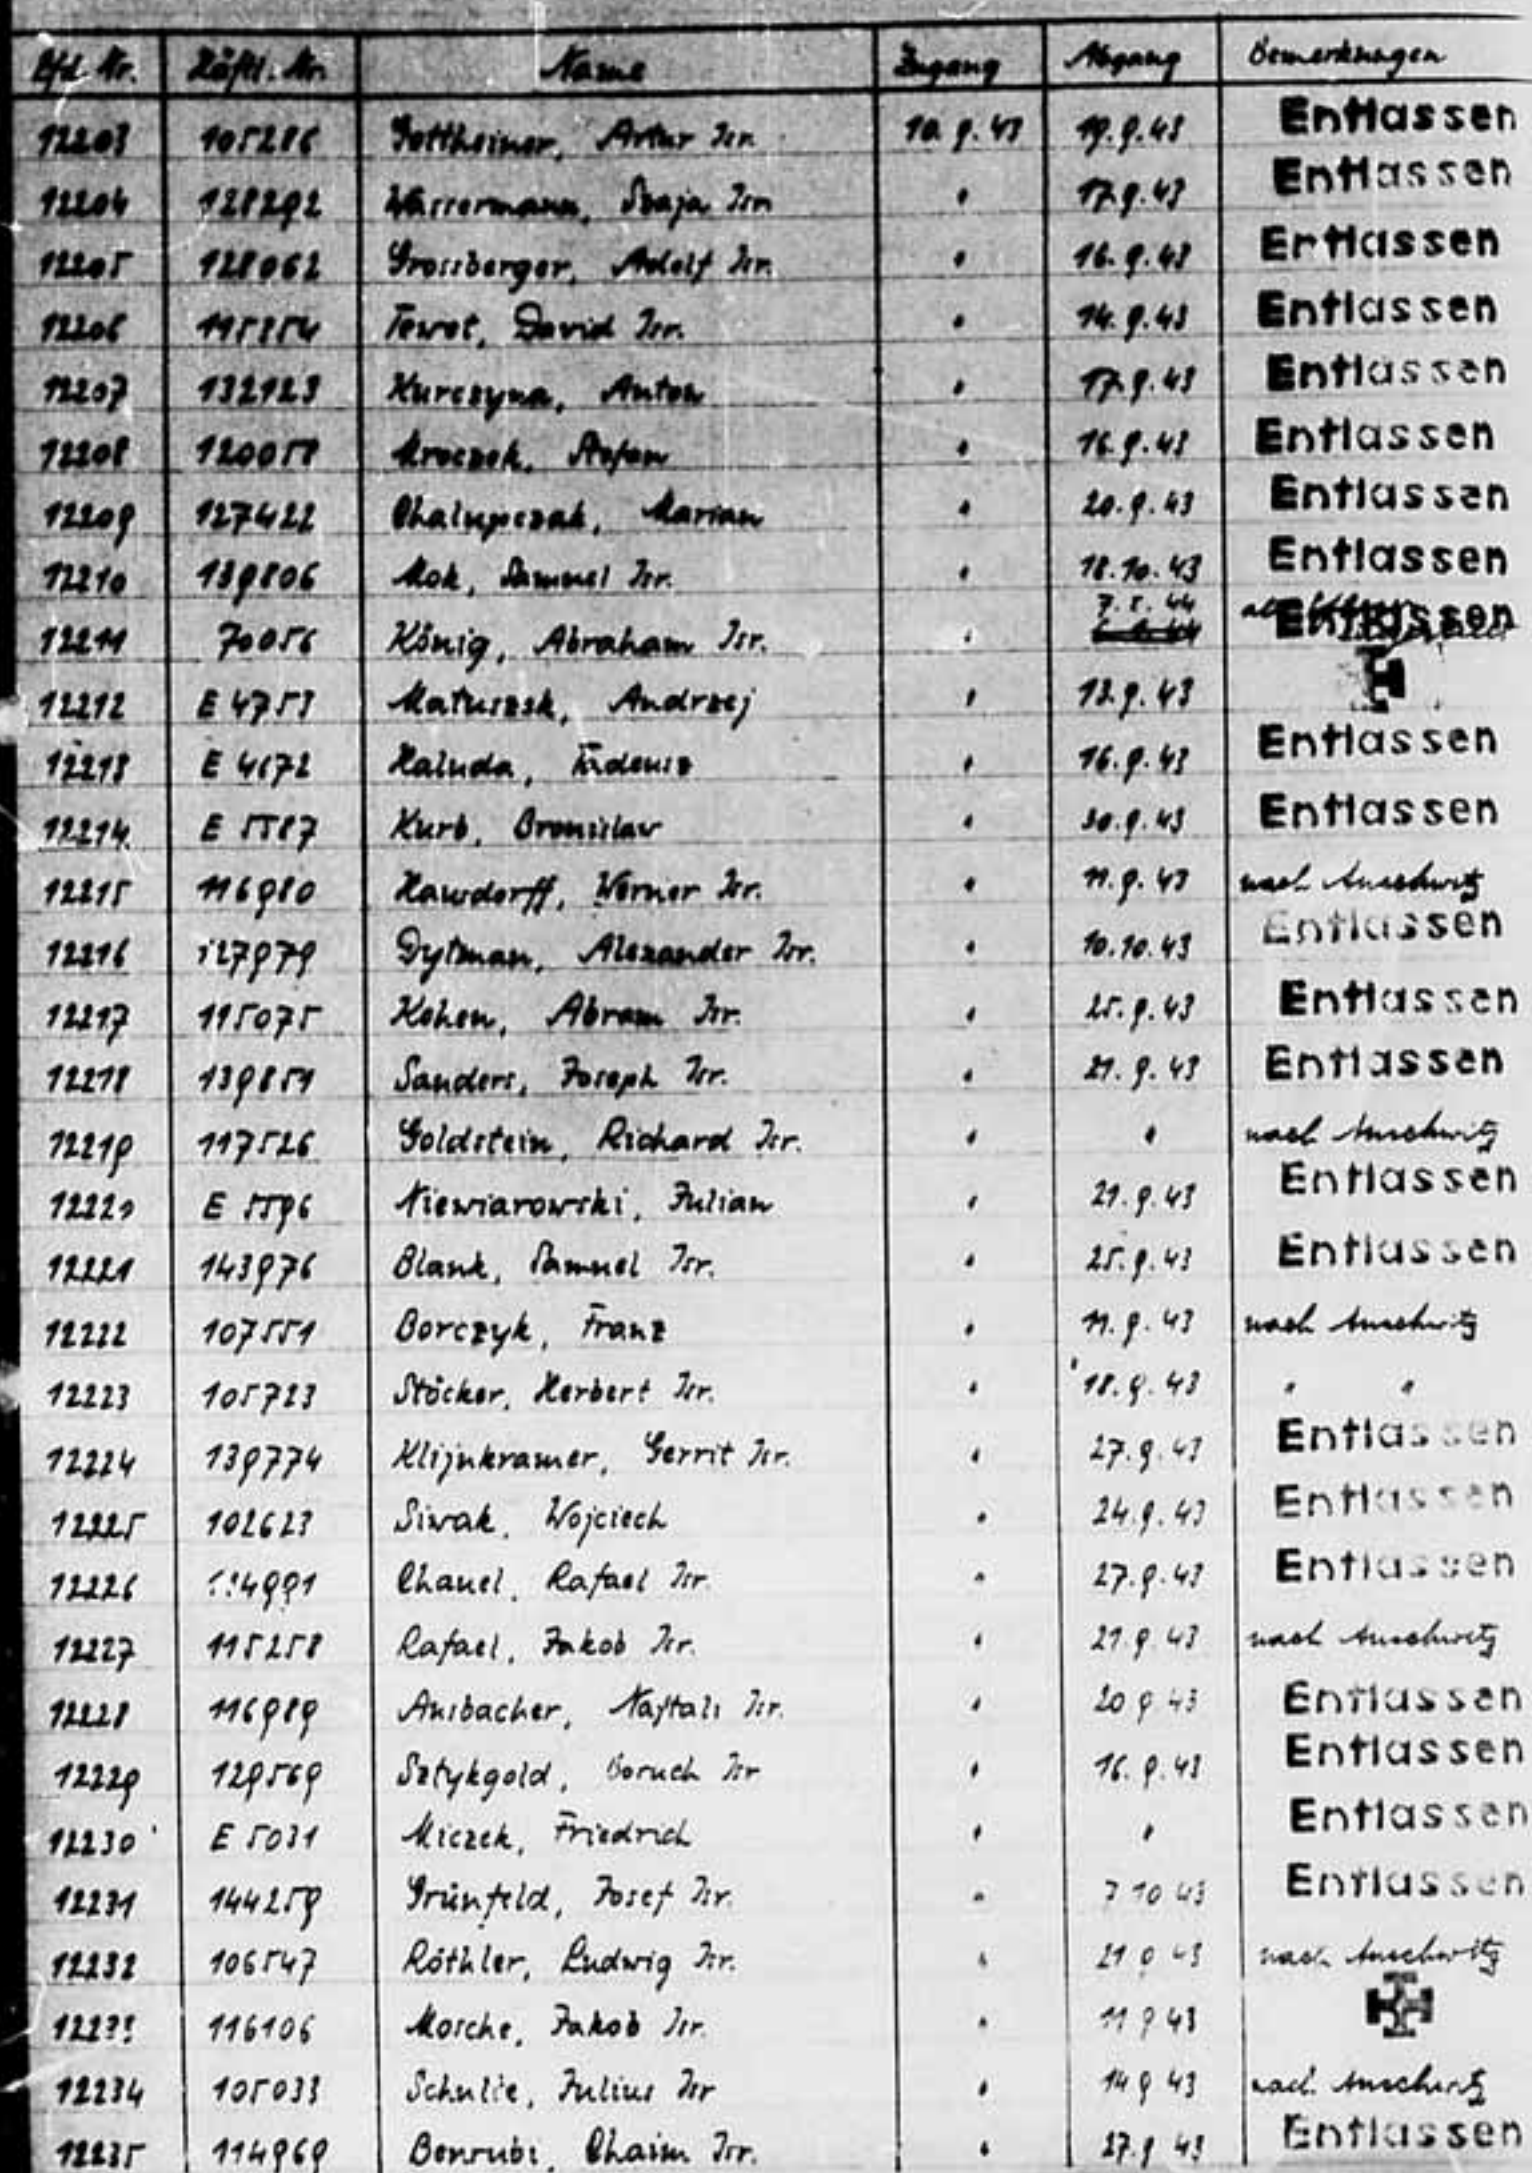 Lfd Nr. Häftl. Nr. Name Zugang Abgang Bemerkungen
12203 105286 Gottheiner, Artur Isr. 10.9.43 19.9.43 Entlassen
12204 128292 Wassermann, Szaja Isr. " 17.9.43 Entlassen
12205 128062 Grossberger, Adolf Isr. " 16.9.43 Entlassen
12206 115854 Tewet, David Isr. " 14.9.43 Entlassen
12207 132123 Kurczyna, Anton " 17.9.43 Entlassen
12208 120058 Mroczek, Stefan " 16.9.43 Entlassen
12209 127422 Chalupczak, Marian " 20.9.43 Entlassen
12210 139806 Mok, Samuel Isr. " 18.10.43 Entlassen
12211 70056 König, Abraham Isr. " 7.5.44 Entlassen
12212 E 4753 Matuszek, Andrzej " 12.9.43
12213 E 4672 Kaluda, Tadeusz " 16.9.43 Entlassen
12214 E 5587 Kurb, Bronislaw " 30.9.43 Entlassen
12215 116980 Hawdorff, Werner Isr. " 11.9.43 nach Auschwitz
12216 127979 Dytman, Alexander Isr. " 10.10.43 Entlassen
12217 115075 Kohen, Abram Isr. " 25.9.43 Entlassen
12218 139851 Sanders, Joseph Isr. " 21.9.43 Entlassen
12219 117526 Goldstein, Richard Isr. " " nach Auschwitz
12220 E 5596 Niewiarowski, Julian " 21.9.43 Entlassen
12221 143976 Blank, Samuel Isr. " 25.9.43 Entlassen
12222 107551 Borczyk, Franz " 11.9.43 nach Auschwitz
12223 105723 Stöcker, Herbert Isr. " 18.9.43 " "
12224 139774 Klijnkramer, Gerrit Isr. " 27.9.43 Entlassen
12225 102623 Siwak, Wojciech " 24.9.43 Entlassen
12226 Chanel, Rafael Isr. " 27.9.43 Entlassen
12227 115258 Rafael, Jakob Isr. " 21.9.43 nach Auschwitz
12228 116989 Ansbacher, Naftali Isr. " 20 9 43 Entlassen
12229 129569 Sztykgold, Boruch Isr " 16.9.43 Entlassen
12230 E 5031 Miczek, Friedrich " " Entlassen
12231 144259 Grünfeld, Josef Isr. " 7 10 43 Entlassen
12232 106547 Röthler, Ludwig Isr. " 21 9 43 nach Auschwitz
116106 Mosche, Jakob Isr. " 11 9 43
12234 105033 Julius Isr " 14 9 43 nach Auschwitz
12235 114969 Benrubi, Chaim Isr. " 27.9 43 Entlassen